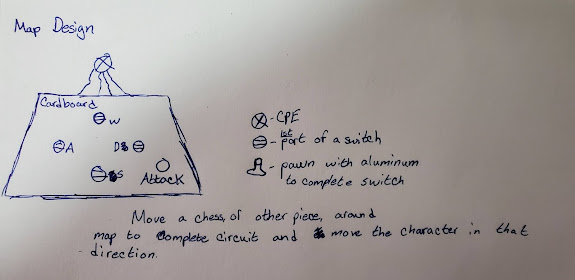 Map Design
Cardboard
W
A
D
S
Attack
- CPE
- 1st part of a switch
- pawn with aluminum
to complete switch
Move a chess, of other piece, around
map to complete circuit and move the character in that
direction.